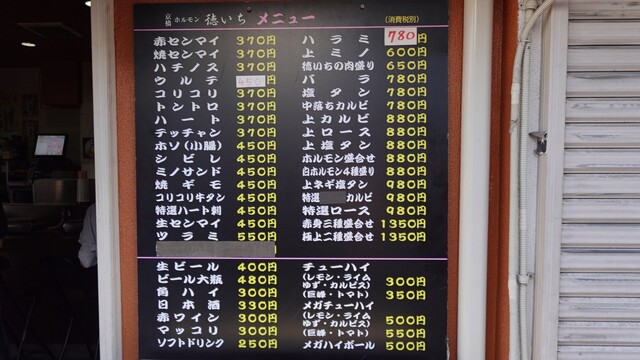 京橋 ホルモン 徳いち メニュー (消費税別)
赤センマイ 370円
焼センマイ 370円
ハチノス 370円
ウルテ 450
コリコリ 370円
トントロ 370円
ハート 370円
テッチャン 370円
ホソ(小腸) 450円
シビレ 450円
ミノサンド 450円
焼ギモ 450円
コリコリ牛タン 450円
特選ハート刺 450円
生センマイ 450円
ツラミ 550円
ハラミ 780円
上ミノ 600円
徳いちの肉盛り 650円
バラ 780円
塩タン 780円
中落ちカルビ 780円
上カルビ 880円
上ロース 880円
上塩タン 880円
ホルモン盛合せ 880円
白ホルモン4種盛り 880円
上ネギ塩タン 980円
特選 カルビ 980円
特選ロース 980円
赤身三種盛合せ 1350円
極上二種盛合せ 1350円
生ビール 400円
ビール大瓶 480円
角ハイ 300円
日本酒 330円
赤ワイン 300円
マッコリ 300円
ソフトドリンク 250円
チューハイ
(レモン・ライム
ゆず・カルピス) 300円
(巨峰・トマト) 350円
メガチューハイ
(レモン・ライム
ゆず・カルピス) 500円
(巨峰・トマト) 550円
メガハイボール 500円